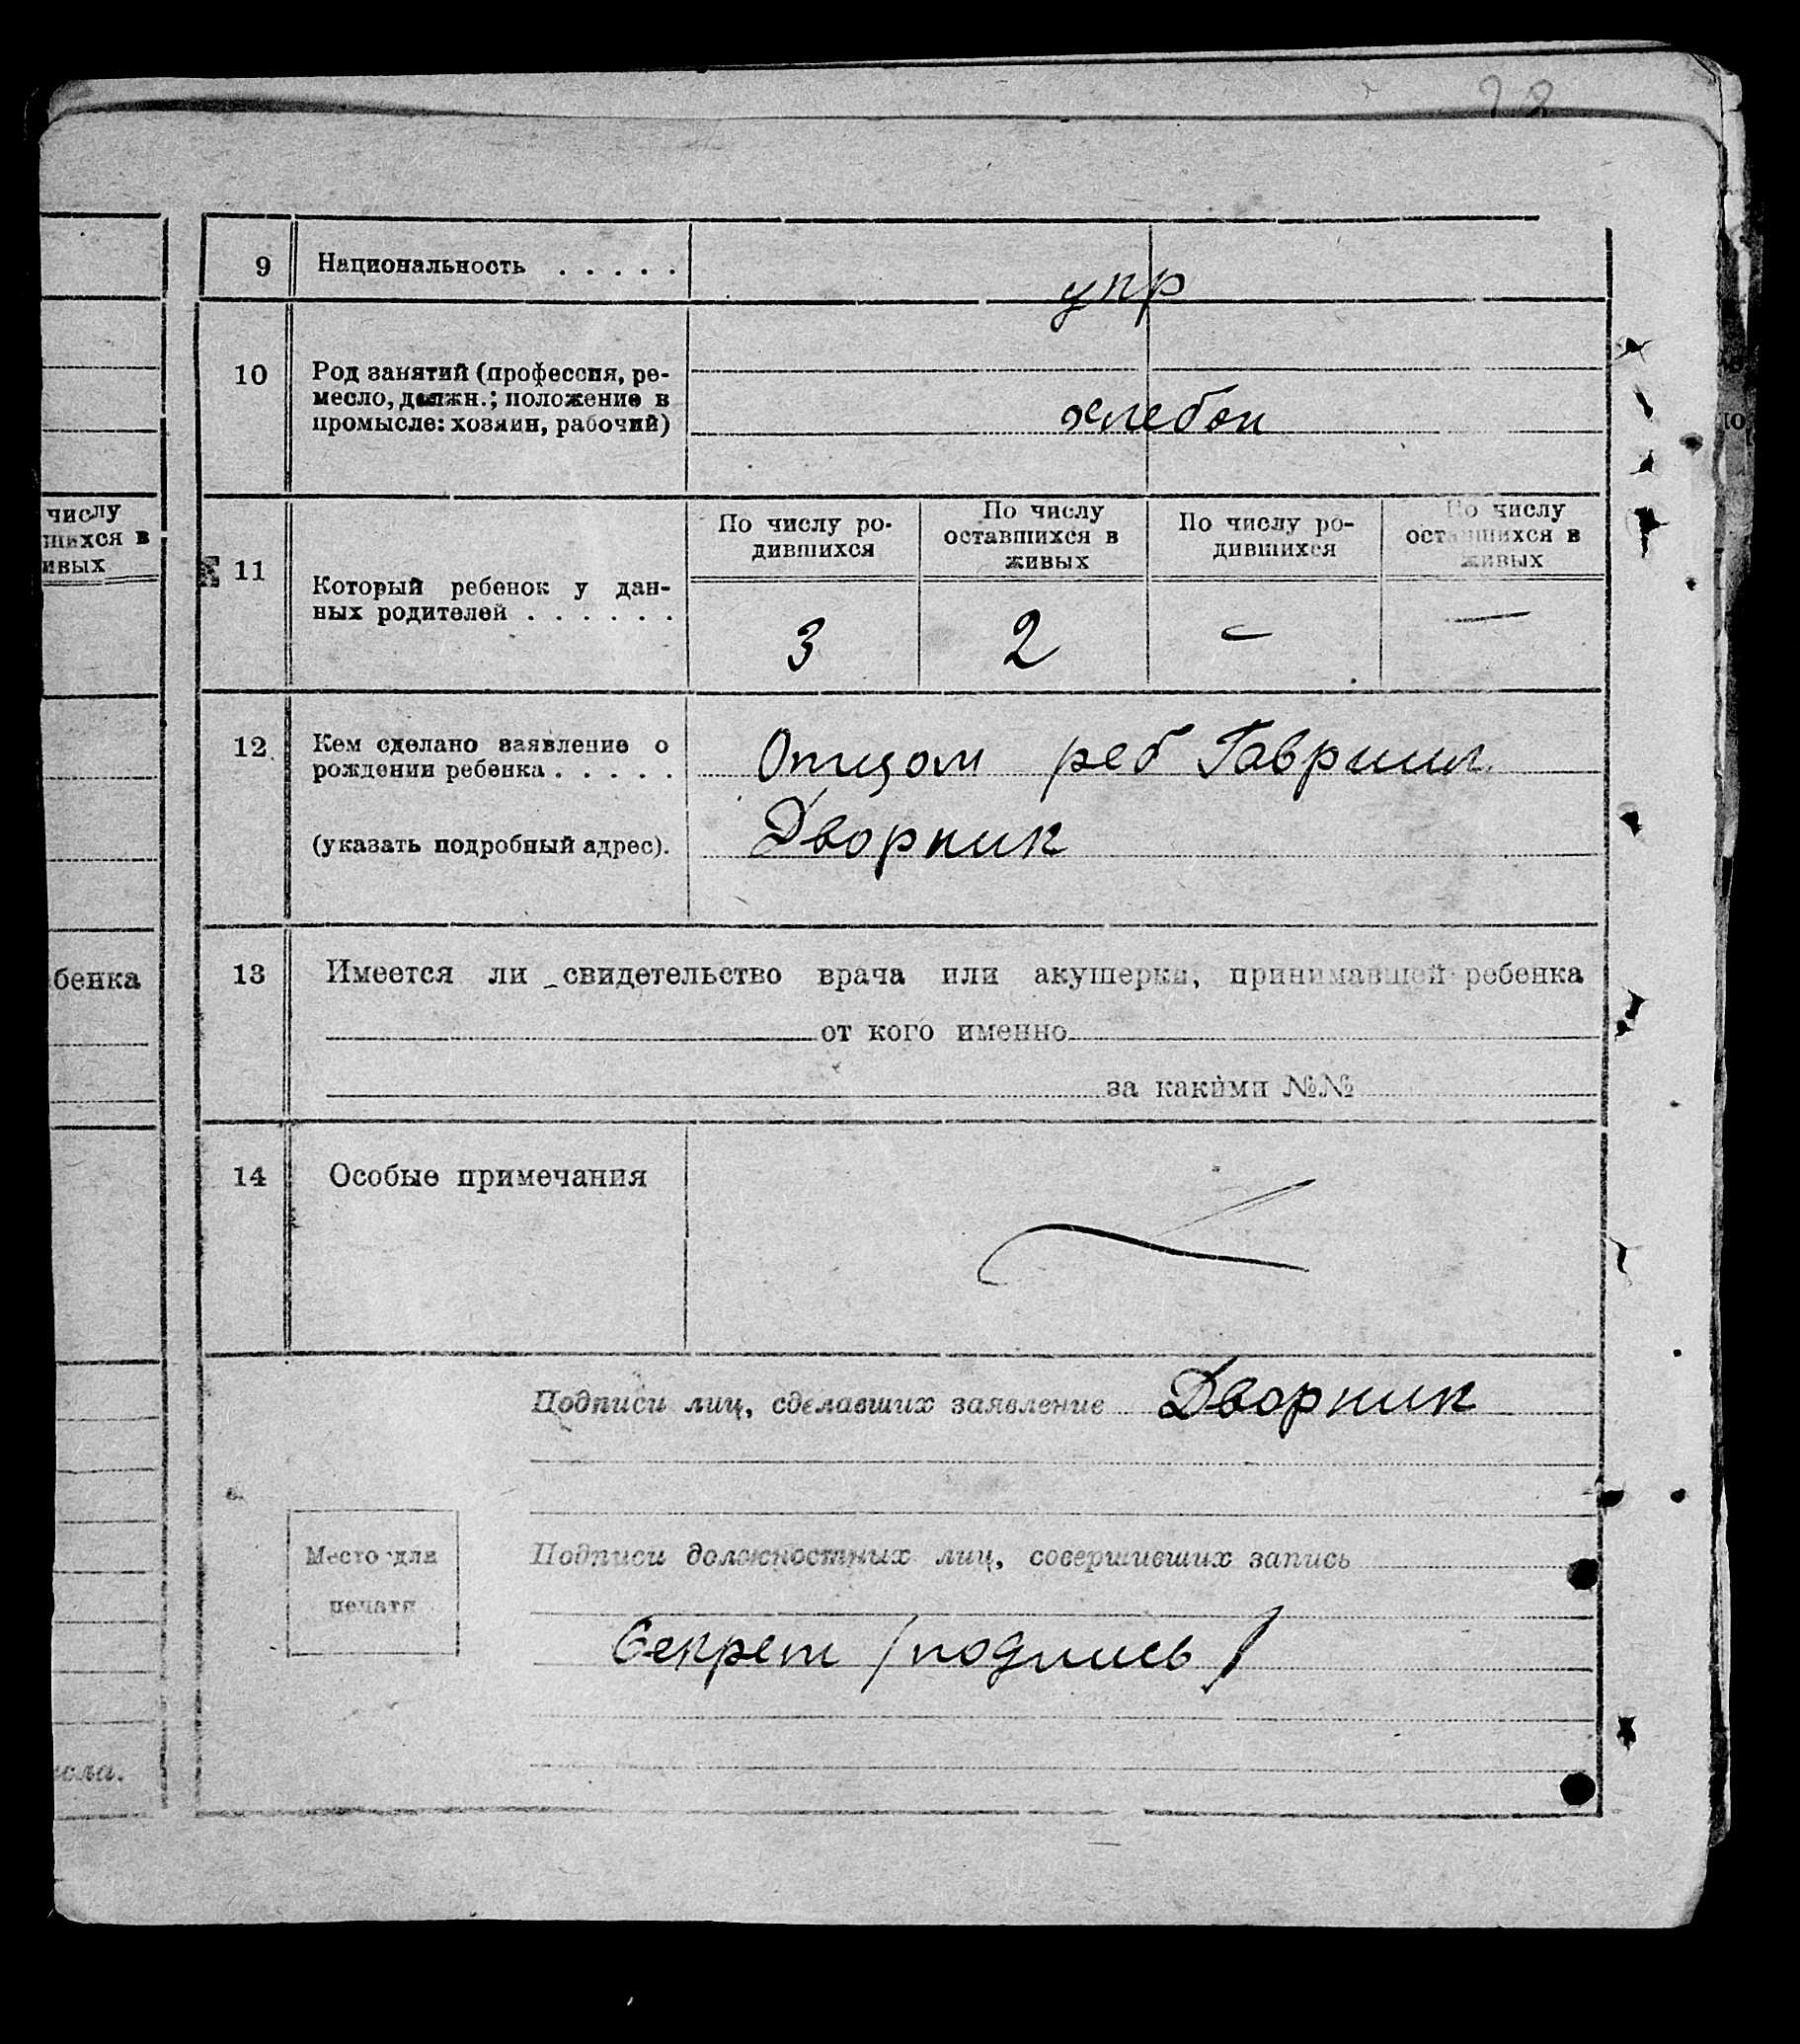 28
9 Национальность . . . . .
упр
10 Род занятий (профессия, ре-
месло, должн.; положение в
промысле: хозяин, рабочий)
хлебоп
числу
шихся в
ивых
11 Который ребенок у дан-
ных родителей . . . . . .
По числу ро-
дившихся
По числу
оставшихся в
живых
По числу ро-
дившихся
По числу
оставшихся в
живых
3 2 — —
12 Кем сделано заявление о
рождении ребенка . . . . .
(указать подробный адрес).
Отцом реб Гавриил
Дворник
бенка
13 Имеется ли свидетельство врача или акушерки, принимавшей ребенка
от кого именно
за какими №№
14 Особые примечания
Подписи лиц, сделавших заявление Дворник
Место для
печати
Подписи должностных лиц, совершивших запись
Секрет /подпись/
исла.